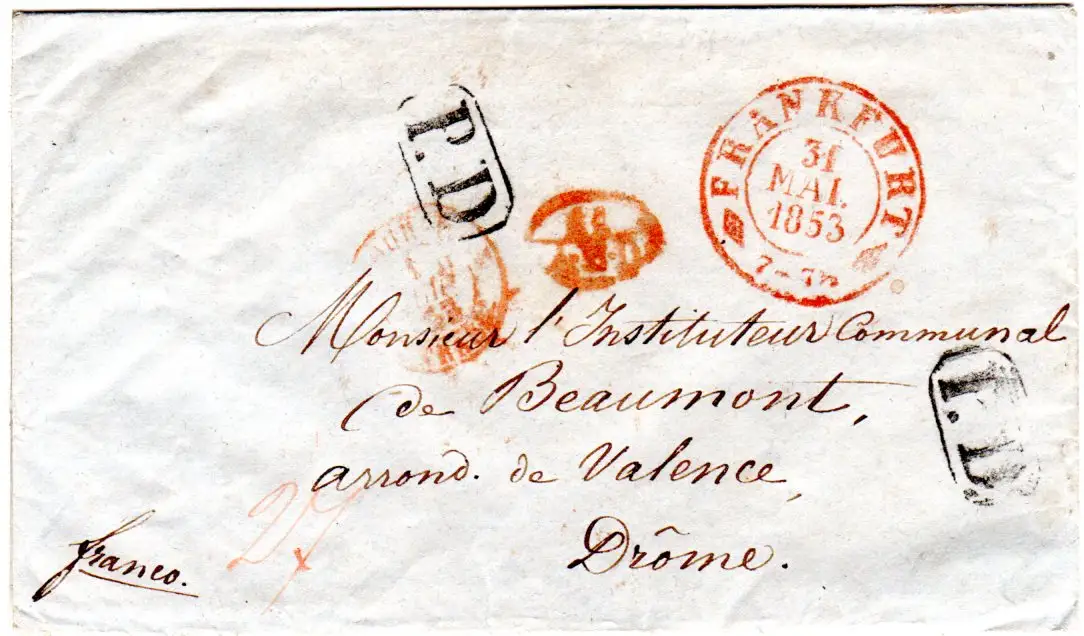 P.D
FRANKFURT
31
MAI.
1853
Monsieur l'Instituteur Communal
de Beaumont,
arrond. de Valence,
Drôme.
P.D.
franco.